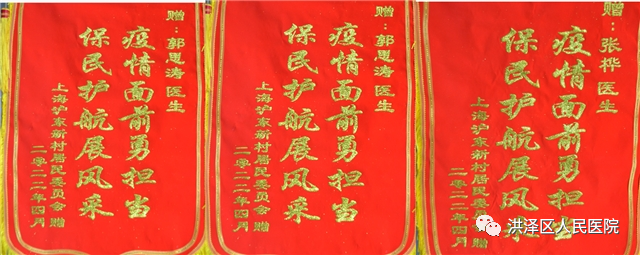 赠：郭思涛医生
疫情面前勇担当
保民护航展风采
上海沪东新村居民委员会赠
二零二二年四月
赠：郭思涛医生
疫情面前勇担当
保民护航展风采
上海沪东新村居民委员会赠
二零二二年四月
赠：张桦医生
疫情面前勇担当
保民护航展风采
上海沪东新村居民委员会赠
二零二二年四月
洪泽区人民医院